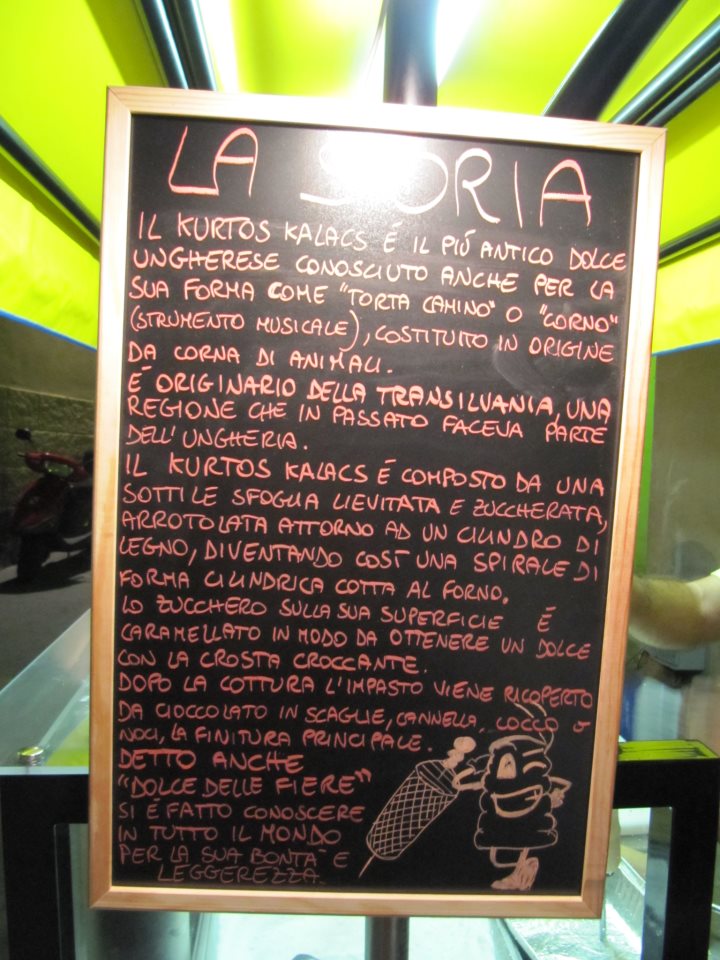 LA STORIA
IL KURTOS KALACS É IL PIÚ ANTICO DOLCE
UNGHERESE CONOSCIUTO ANCHE PER LA
SUA FORMA COME "TORTA CAMINO" O "CORNO"
(STRUMENTO MUSICALE), COSTITUITO IN ORIGINE
DA CORNA DI ANIMALI.
É ORIGINARIO DELLA TRANSILVANIA, UNA
REGIONE CHE IN PASSATO FACEVA PARTE
DELL'UNGHERIA.
IL KURTOS KALACS É COMPOSTO DA UNA
SOTTILE SFOGLIA LIEVITATA E ZUCCHERATA,
ARROTOLATA ATTORNO AD UN CILINDRO DI
LEGNO, DIVENTANDO COSÍ UNA SPIRALE DI
FORMA CILINDRICA COTTA AL FORNO.
LO ZUCCHERO SULLA SUA SUPERFICIE É
CARAMELLATO IN MODO DA OTTENERE UN DOLCE
CON LA CROSTA CROCCANTE.
DOPO LA COTTURA L'IMPASTO VIENE RICOPERTO
DA CIOCCOLATO IN SCAGLIE, CANNELLA, COCCO O
NOCI, LA FINITURA PRINCIPALE.
DETTO ANCHE
"DOLCE DELLE FIERE"
SI É FATTO CONOSCERE
IN TUTTO IL MONDO
PER LA SUA BONTA' E
LEGGEREZZA.